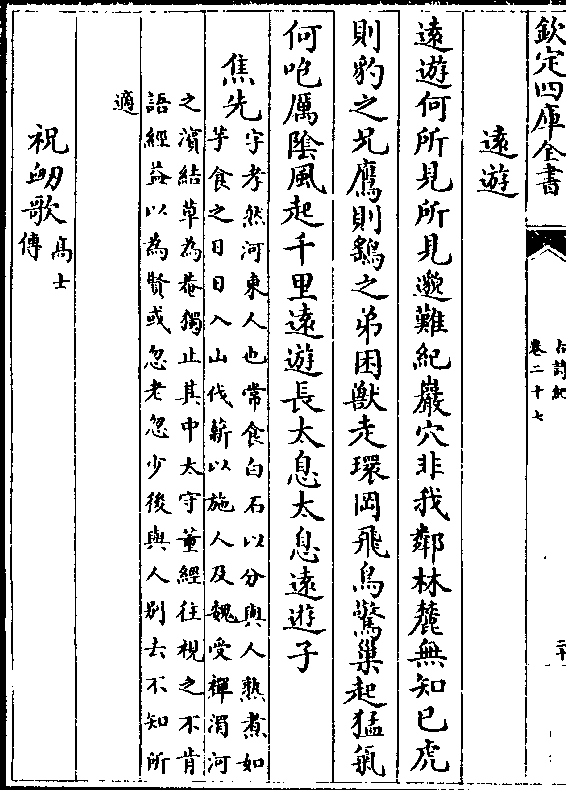 欽定四庫全書
古詩紀
卷二十七
遠遊
遠遊何所見所見邈難紀巖穴非我鄰林麓無知己虎
則豹之兄鷹則鷂之弟困獸走環岡飛鳥驚巢起猛氣
何咆厲陰風起千里遠遊長太息太息遠遊子
焦先
字孝然河東人也常食白石以分與人熟煮如
芋食之日日入山伐薪以施人及魏受禪湄河
之濱結草為菴獨止其中太守董經往視之不肯
語經益以為賢或忽老忽少後與人别去不知所
適
祝衂歌
髙士
傳